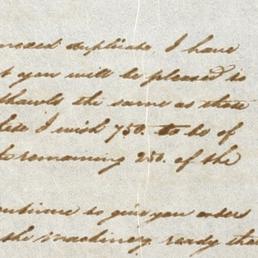 duplicate. I have
t you will be pleased to
shawls the same as these
I wish 750. to be of
remaining 250. of the
continue to give you orders
the machinery ready that